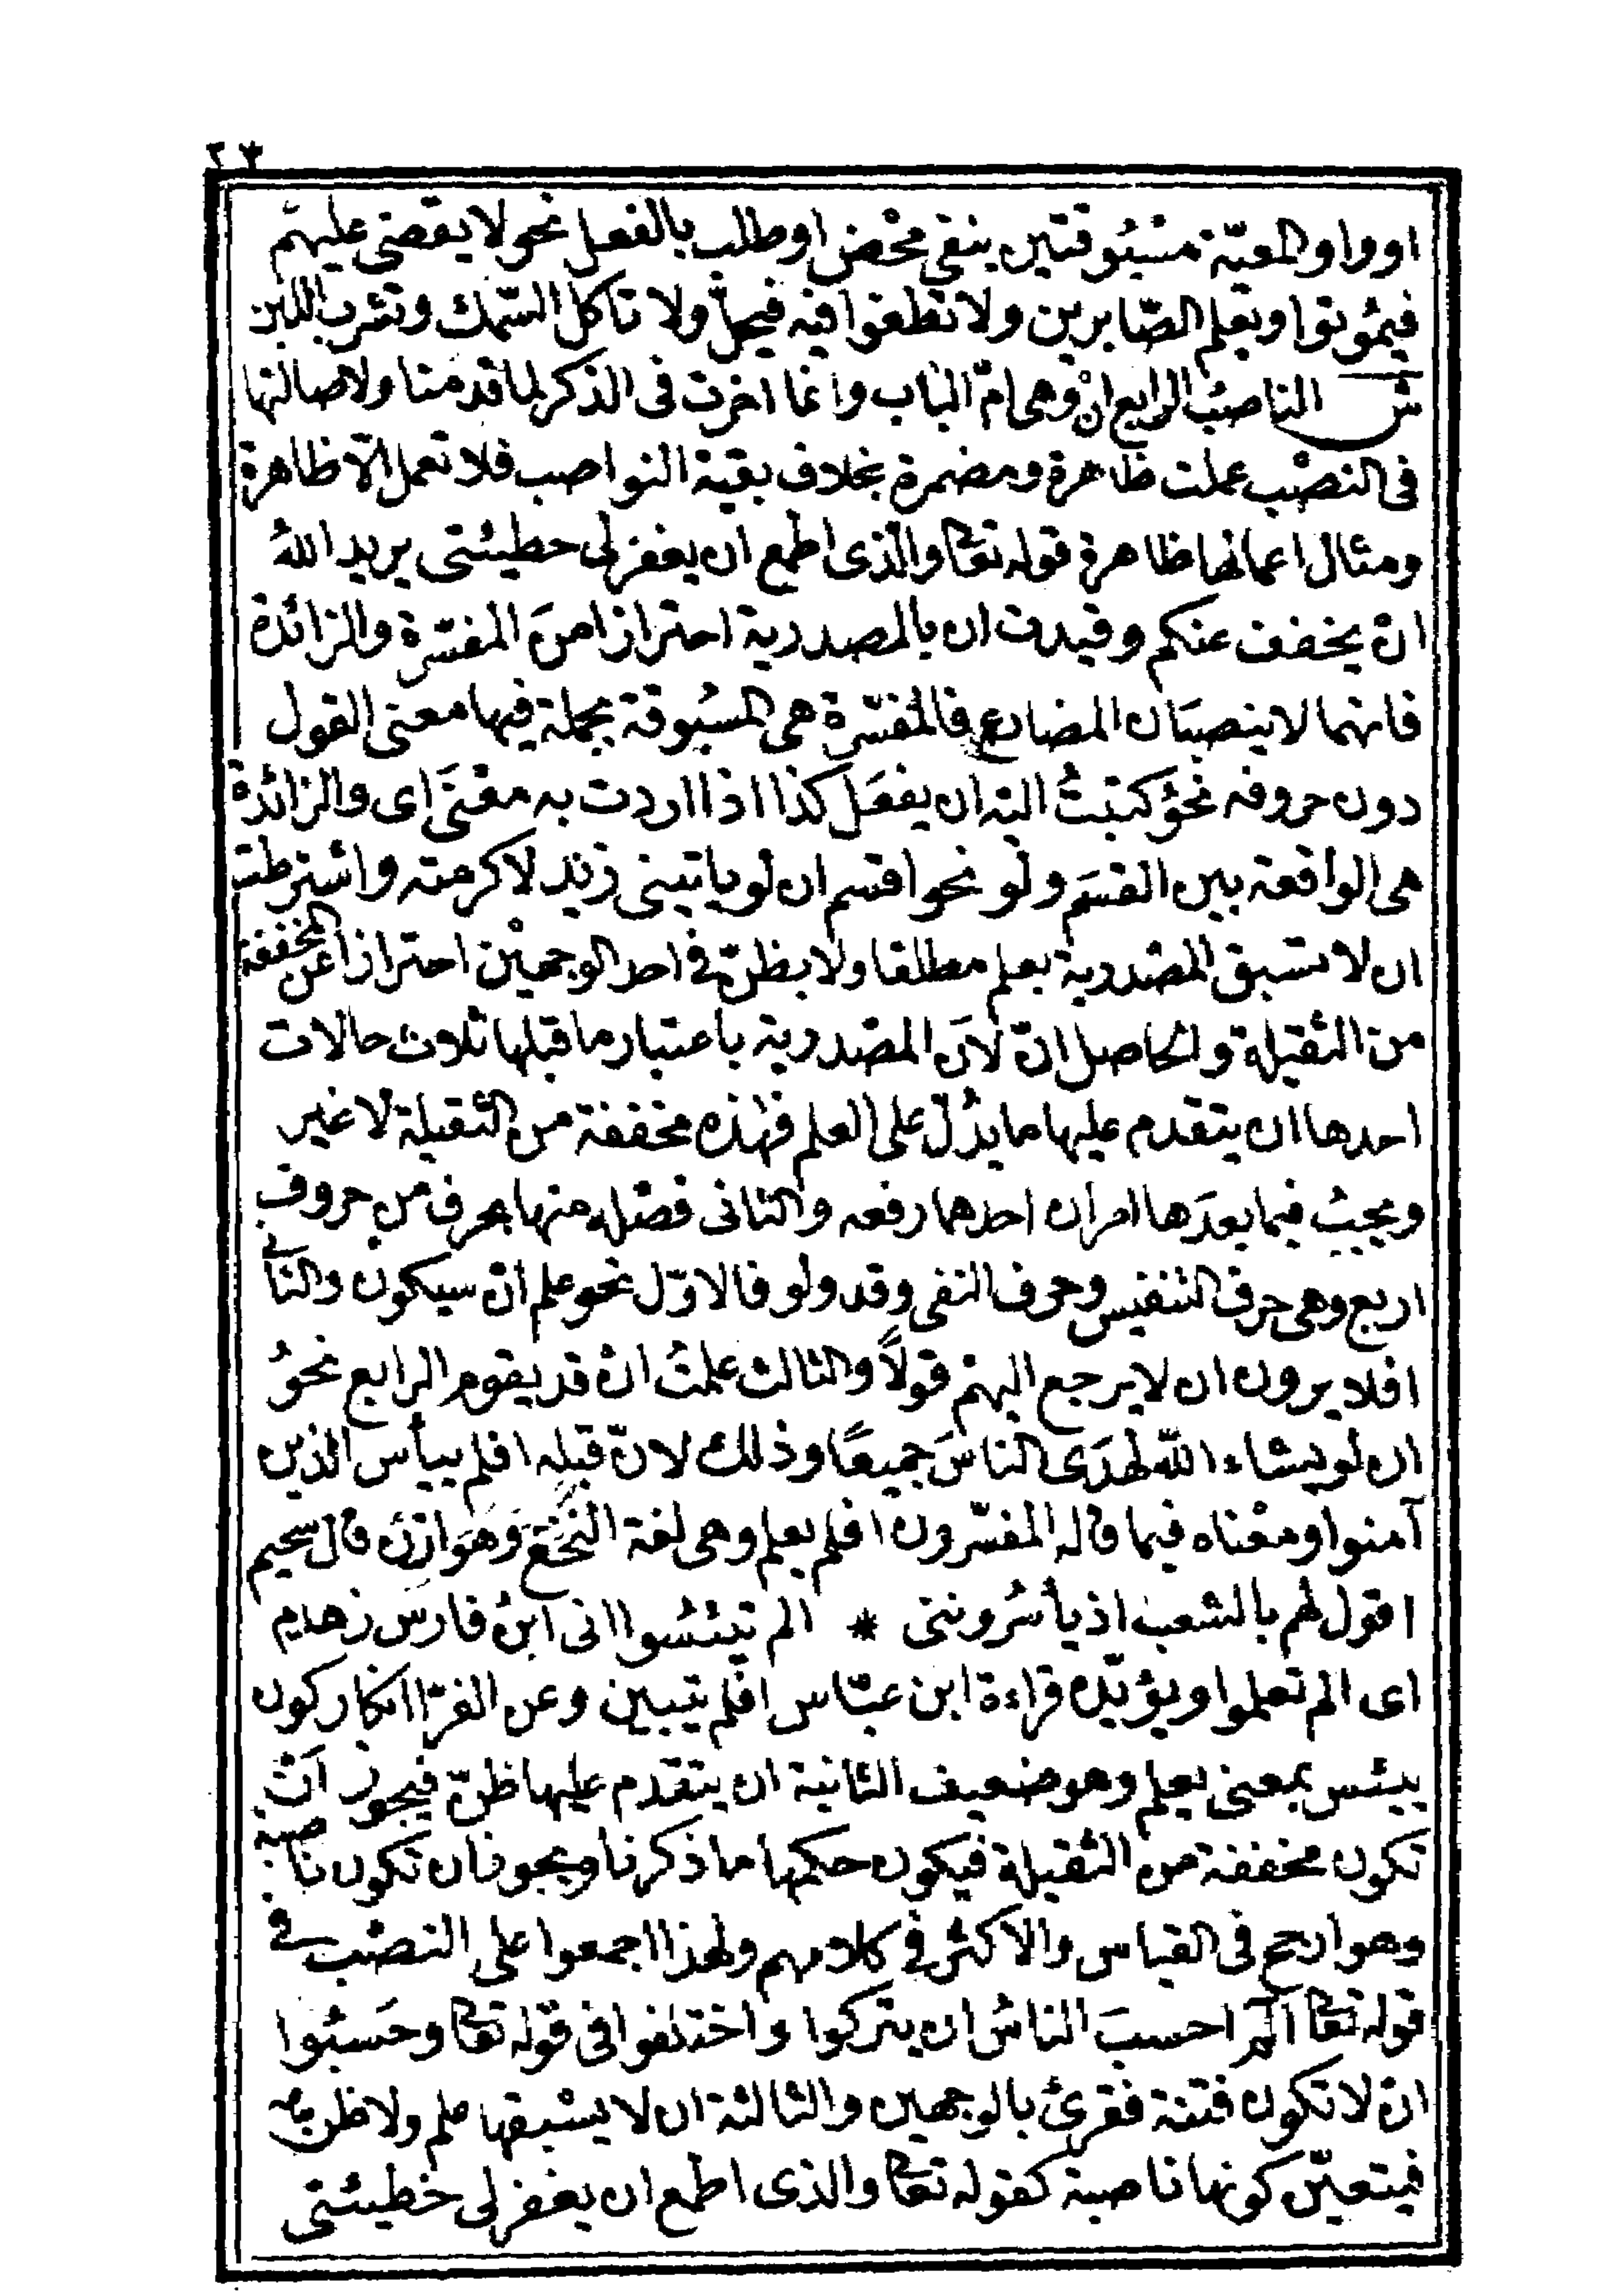 ٢٣
او واو المعيّة مسبُوقتين بنفي محْض او طلب بالفعل نحو لا يقضى عليهم
فيمُوتوا ويعلم الصّابرين ولا تطغوا فيه فيحلَّ ولا تاكل السّمك وتشرب اللبن
ش الناصبُ الرابع انْ وهى امّ الباب وانما اخرت فى الذكر لما قدمنا ولاصالتها
فى النصْب عملت ظاهرة ومضمرة بخلاف بقية النواصب فلا تعمل الّا ظاهرة
ومثال اعمالها ظاهرة قوله تعا والّذى اطمع ان يغفر لى خطيئتى يريد اللهُ
انْ يخفف عنكم وقيدت ان بالمصدرية احترازا منَ المفسّرة والزائدة
فانهما لا ينصبَان المضارع فالمفسّرة هى المسبُوقة بجملة فيها معنى القول
دون حروفه نحوُ كتبتُ اليه ان يفعَل كذا اذا اردت به معْنَى اى والزائدة
هى الواقعة بين القسَم ولو نحو اقسم ان لو ياتينى زيد لاكرمته واشترطت
ان لا تسبق المصْدرية بعلم مطلقا ولا بظنّ فى احد الوجهيْن احترازا عن المخففة
من الثقيلة والحاصل انّ لاَن المصْدرية باعتبار ما قبلها ثلاث حالات
احدها ان يتقدم عليها ما يدُلّ على العلم فهٰذه مخففة من الثقيلة لا غير
ويجبُ فيما بعدَها امران احدهما رفعه والثانى فصْله منها بحرف من حروف
اربع وهى حرف التنفيس وحرف النفى وقد ولو فالاوّل نحو علم انْ سيكون والثانى
افلا يرون ان لا يرجع اليهم قولًا والثالث علمتُ انْ قد يقوم الرابع نحوُ
ان لو يشاء اللّه لهدَى الناسَ جميعًا وذلك لانّ قبله افلم ييأس الذين
آمنوا ومعْناه فيما قاله المفسّرون افلم يعلم وهى لغة النخَعْ وَهَوازن قال سحيم
اقول لهم بالشعب اذ يأسُروننى * الم تيئسُوا انى ابنُ فارس زهدم
اى الم تعلموا ويؤيّده قراءة ابن عبّاس افلم يتبين وعن الفرّا انكار كون
ييئس بمعنى يعلم وهو ضعيف الثانية ان يتقدم عليها ظنّ فيجوز اَنْ
تكون مخففة من الثقيلة فيكون حكمها ما ذكرنا ويجوز ان تكون ناصبة
وهو ارجح فى القياس والاكثر فى كلامهم ولهذا اجمعوا على النصْب فى
قوله تعا آلٓمٓ احسبَ الناسُ ان يتركوا واختلفوا فى قوله تعا وحَسبُوا
انْ لا تكون فتنة فقرئ بالوجهين والثالثة ان لا يسْبقها علم ولا ظن
فيتعيّن كونها ناصبة كقوله تعا والذى اطمع ان يغفر لى خطيئتى